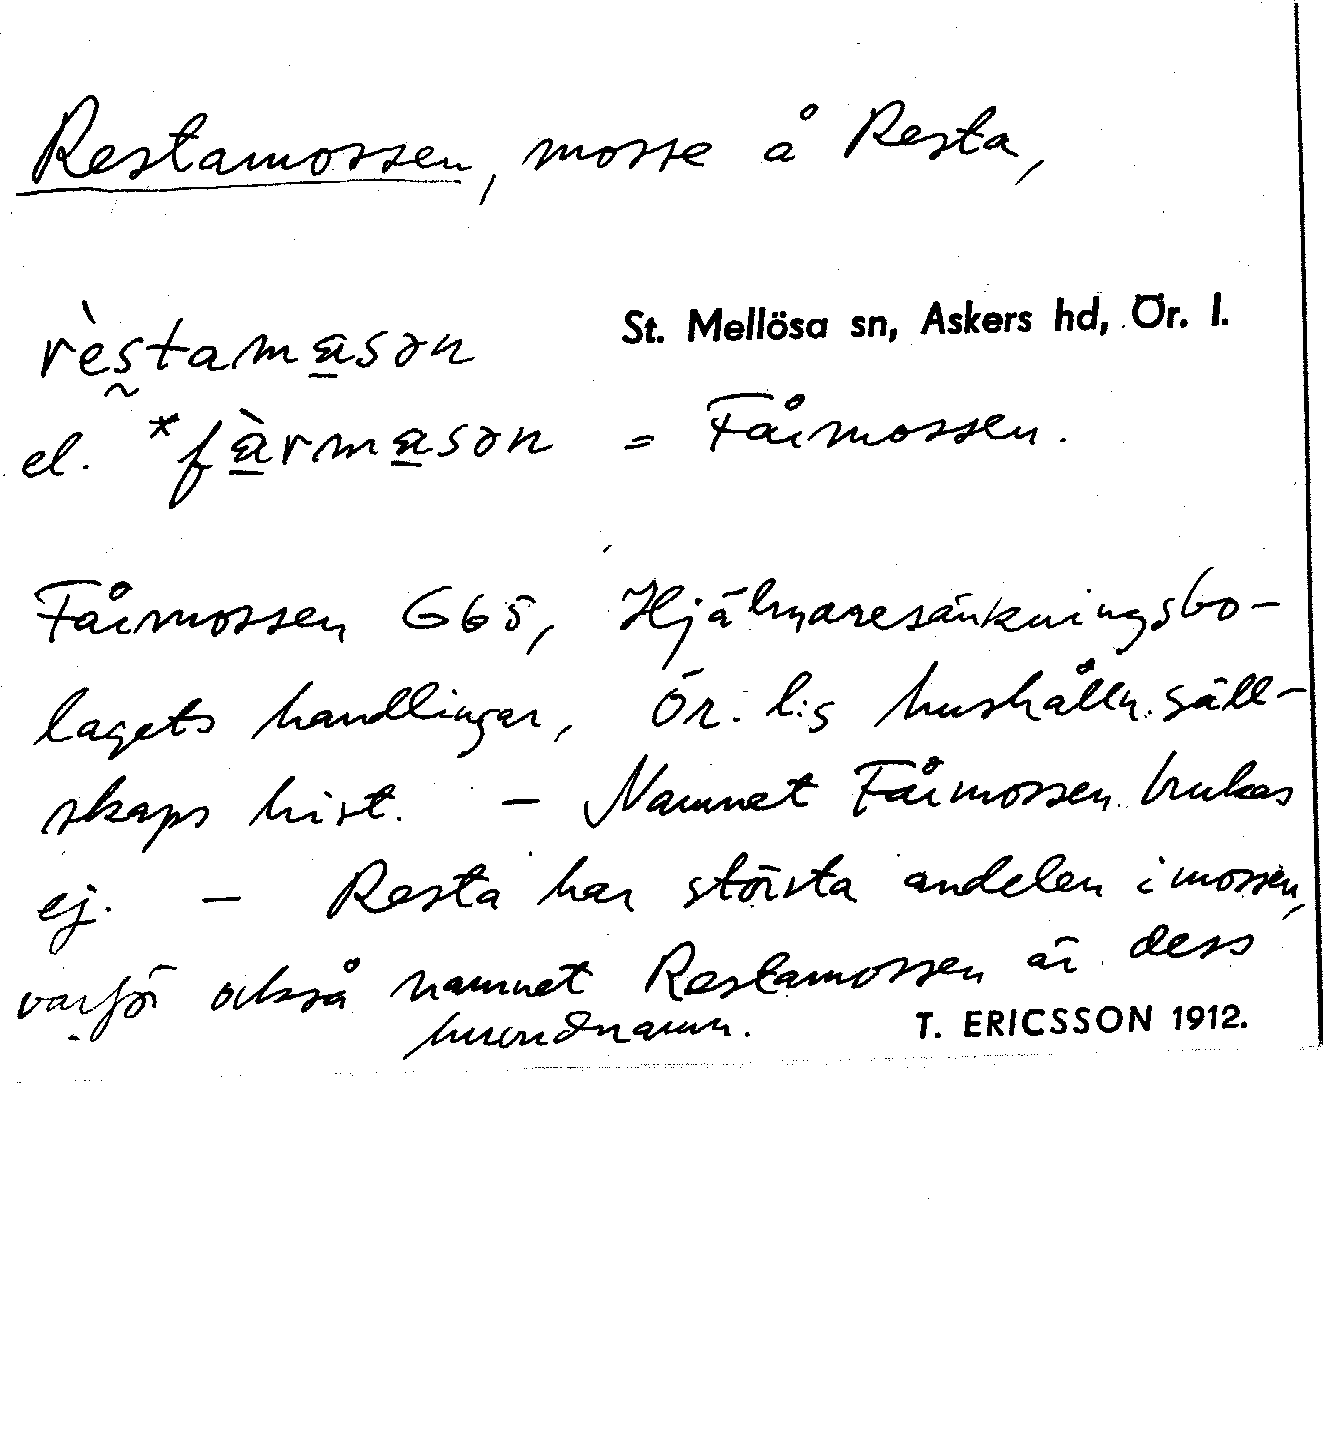 Restamossen, mosse å Resta,
St. Mellösa sn, Askers hd, Ör. l.
rèstamasən
el. *fàrmasən = Fårmossen.
Fårmossen G65, Hjälmaresänkningsbo-
lagets handlingar, Ör. l:s hushålln. säll-
skaps hist. – Namnet Fårmossen brukas
ej. – Resta har största andelen i mossen,
varför också namnet Restamossen är dess
huvudnamn.
T. ERICSSON 1912.